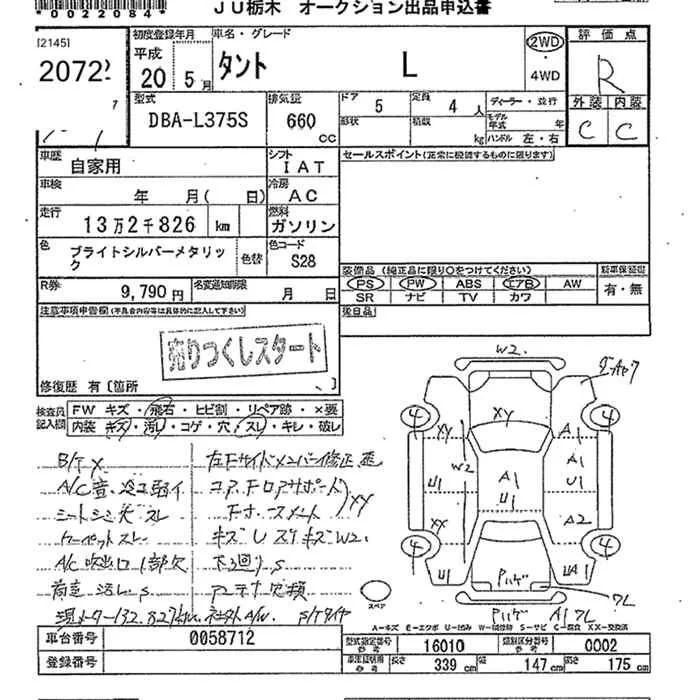 *0022084*
JU栃木 オークション出品申込書
[2145]
2072
初度登録年月 車名・グレード
平成 20 5月 タント L
2WD
・4WD
評価点
R
外装 内装
C C
型式 DBA-L375S
排気量 660 cc
ドア 5 定員 4人 ディーラー・並行
形状 積載 kg
モデル年式 年
ハンドル 左・右
車歴 自家用
シフト IAT
セールスポイント(正常に機能するものに限ります)
車検 年 月( 日)
冷房 AC
走行 13万2千826 km
燃料 ガソリン
色 ブライトシルバーメタリック
色替
色コード S28
装備品(純正品に限り○をつけてください)
新車保証書
PS PW ABS エアB AW
SR ナビ TV カワ
有・無
R券 9,790円
名変通知期限 月 日
後日品
注意事項申告欄(不具合内容等は具体的に記入して下さい)
売りつくしスタート
修復歴 有〔箇所 、〕
検査員記入欄
FW キズ・飛石・ヒビ割・リペア跡・×要
内装 キズ・汚レ・コゲ・穴・スレ・キレ・破レ
B/T X
左Fサイドメンバー修正
A/C音、冷え弱イ
コアフロアサポート
XY
シートシミ スレ
カーペットスレ
キズ W2.
A/C吹出口1部欠
下回りS
荷室 汚レ.S
アンテナ欠損
現メーター132,827km.
社外A/W.
S/Tタイヤ
W2.
XY
4
4
XY
A1
W2
A1
A1
U1
U1
U1
XY
A2
4
4
U1
UA1
Pハゲ
7L
Pハゲ A1 7L
スペア
A－キズ E－エクボ U－凹み W－補修跡 S－サビ C－腐食 XX－交換済
車台番号 0058712
登録番号
型式指定番号 参考 16010
類別区分番号 参考 0002
車庫証明用 参考 長さ 339 cm 幅 147 cm 高さ 175 cm